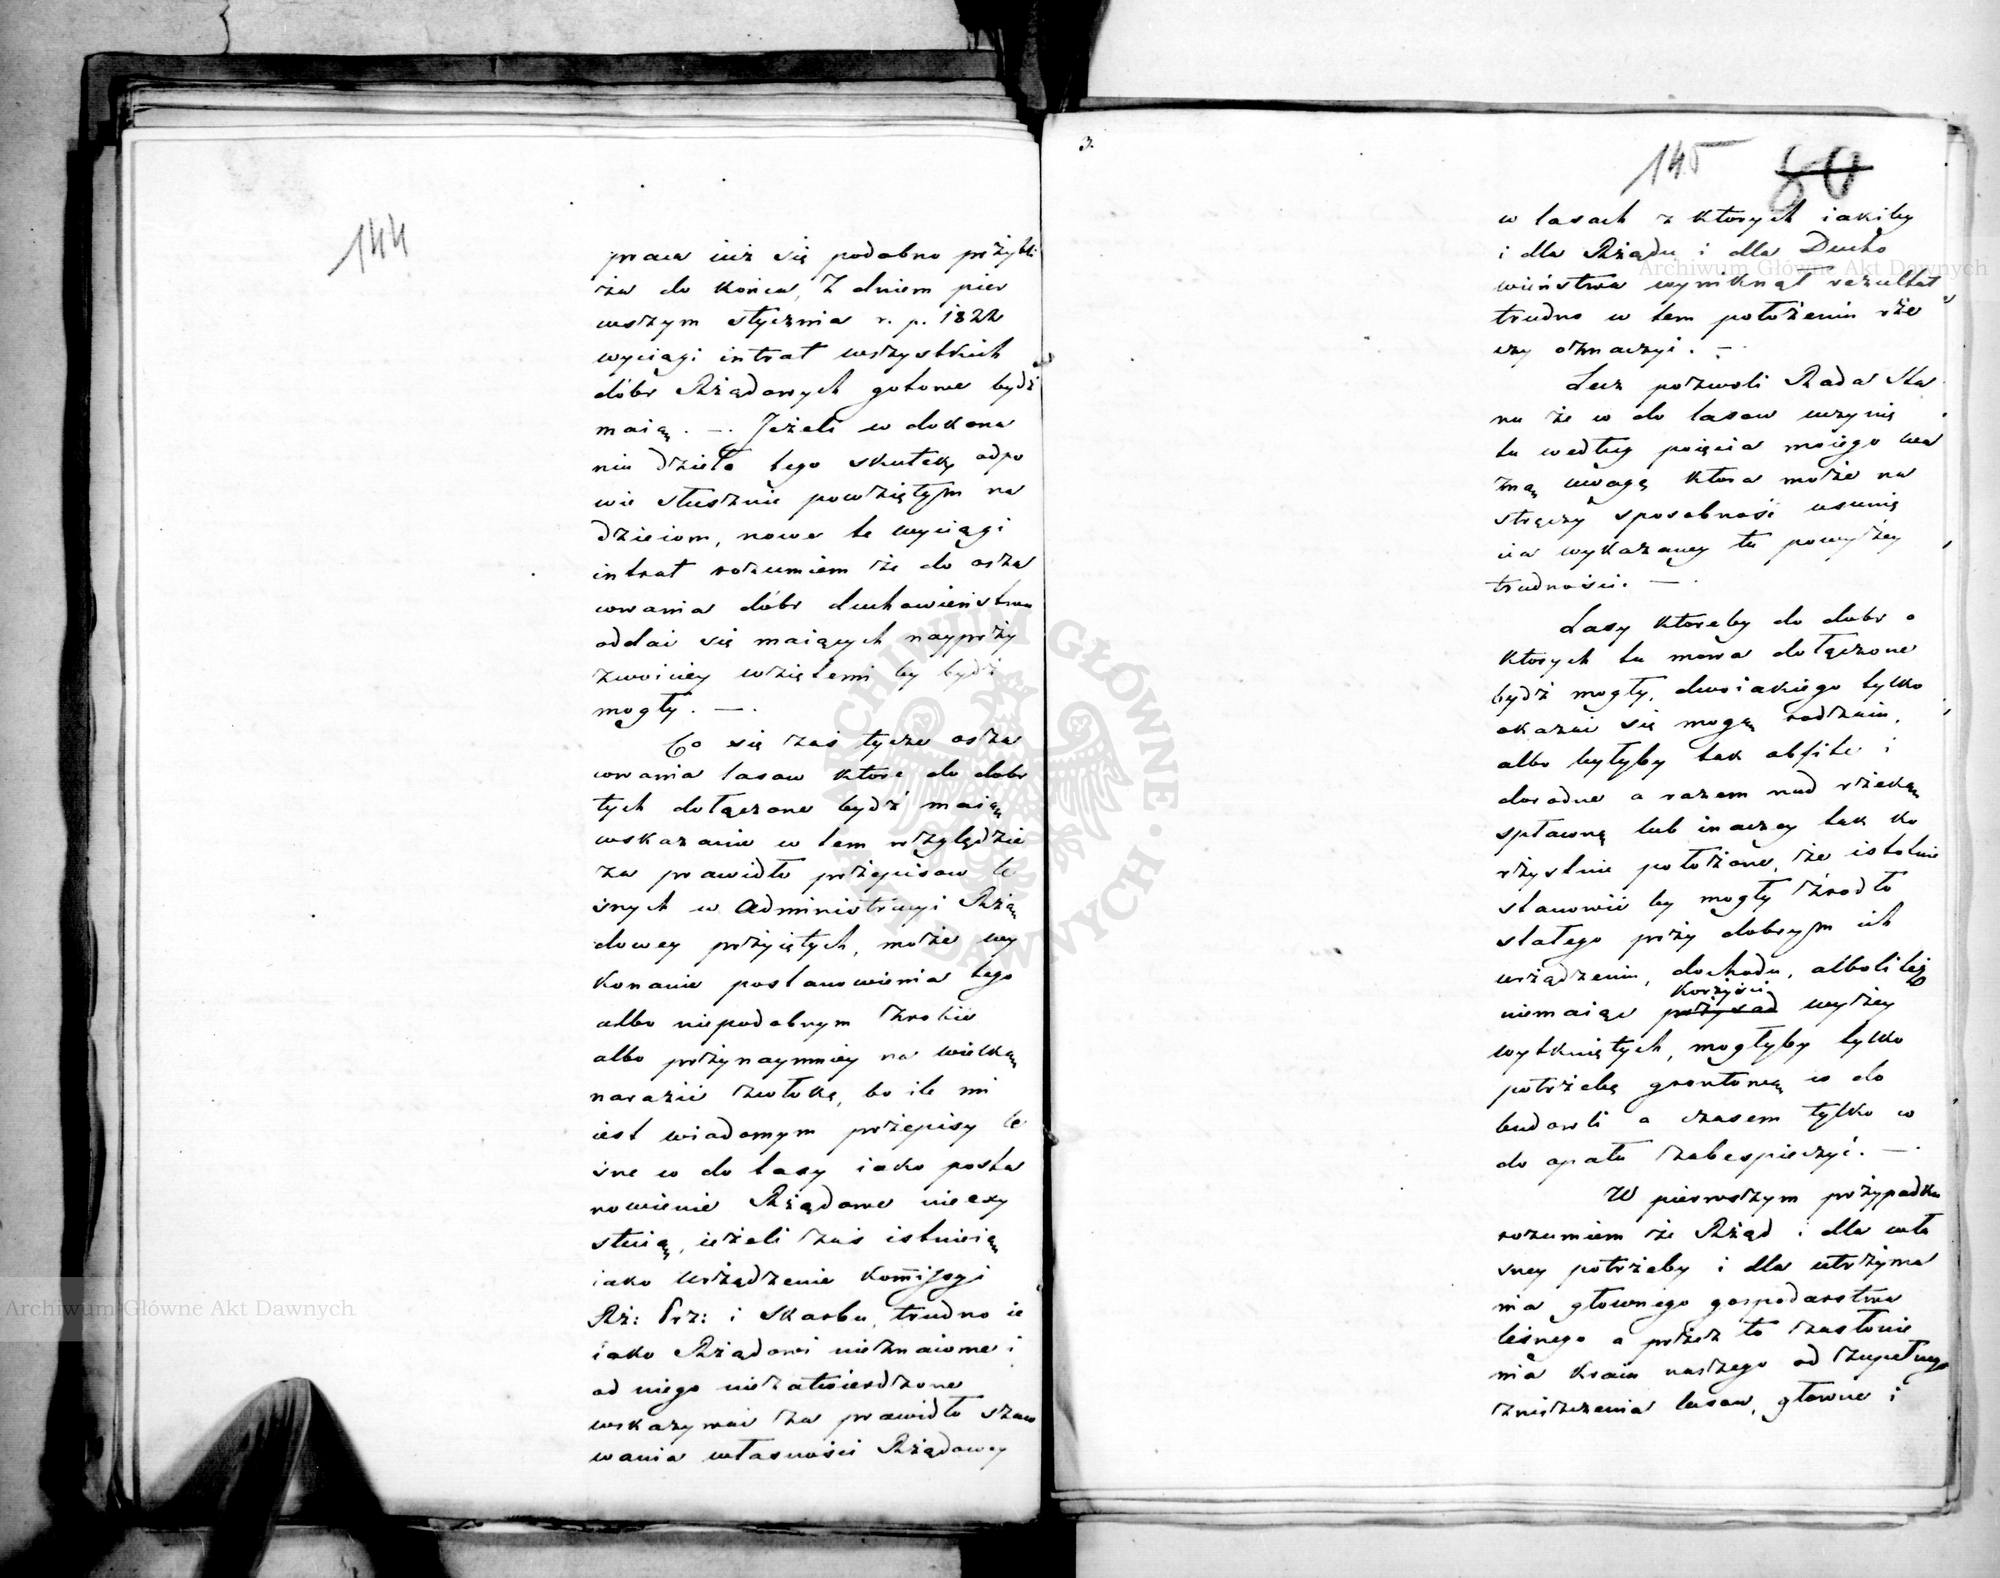 144
praca iuż się podobno przybli
ża do końca, Z dniem pier
wszym stycznia r. p. 1822
wyciągi intrat wszystkich
dóbr Rządowych gotowe bydź
maią. — . Jeżeli w dokona
niu dzieła tego skutek odpo
wie słusznie powziętym na
dzieiom, nowe te wyciągi
intrat rozumiem że do osza
cowania dóbr duchowieństwu
oddać się maiących nayprzy
zwoiciey wziętemi by bydź
mogły. — .
Co się zaś tycze osza
cowania lasow które do dobr
tych dołączone bydź maią
wskazanie w tem względzie
za prawidło przepisow le
śnych w Administracyi Rzą
dowey przyiętych, może wy
konanie postanowienia tego
albo niepodobnym zrobić
albo przynaymniey na wielką
narazić zwłokę, bo ile mi
iest wiadomym przepisy le
śne co do lasy iako posta
nowienie Rządowe nieexy
stuią, ieżeli zaś istnieią
iako urządzenie Kommissyi
Rz: Prz: i Skarbu, trudno ie
iako Rządowi nieznaiome i
od niego niezatwierdzone
wskazywać za prawidło szaco
wania własności Rządowey
3.
145 80
w lasach z których iakiby
i dla Rządu i dla Ducho
wieństwa wyniknął rezultat
trudno w tem położeniu rze
czy oznaczyć. — .
Lecz pozwoli Rada Sta
nu że co do lasow uczynię
tu według poięcia moiego wa
żną uwagę ktora może na
stręczy sposobność usunię
cia wykazaney tu powyżey
trudności. — .
Lasy ktoreby do dobr o
ktorych tu mowa dołączone
bydź mogły, dwoiakiego tylko
okazać się mogą rodzaiu,
albo byłyby tak obfite i
dorodne a razem nad rzeką
spławną lub inaczey tak ko
rzystnie położone, że istotnie
stanowić by mogły źrodło
stałego przy dobrym ich
urządzeniu, dochodu, alboli też
korzyści
niemaiąc wyżey
wytkniętych, mogłyby tylko
potrzebę gruntową co do
budowli a czasem tylko co
do opału zabespieczyć. — .
W pierwszym przypadku
rozumiem że Rząd i dla wła
sney potrzeby i dla utrzyma
nia głownego gospodarstwa
leśnego a przez to zasłonie
nia kraiu naszego od zupełnego
zniszczenia lasow, głowne i
Archiwum Główne Akt Dawnych
Archiwum Główne Akt Dawnych
ARCHIWUM GŁÓWNE AKT DAWNYCH